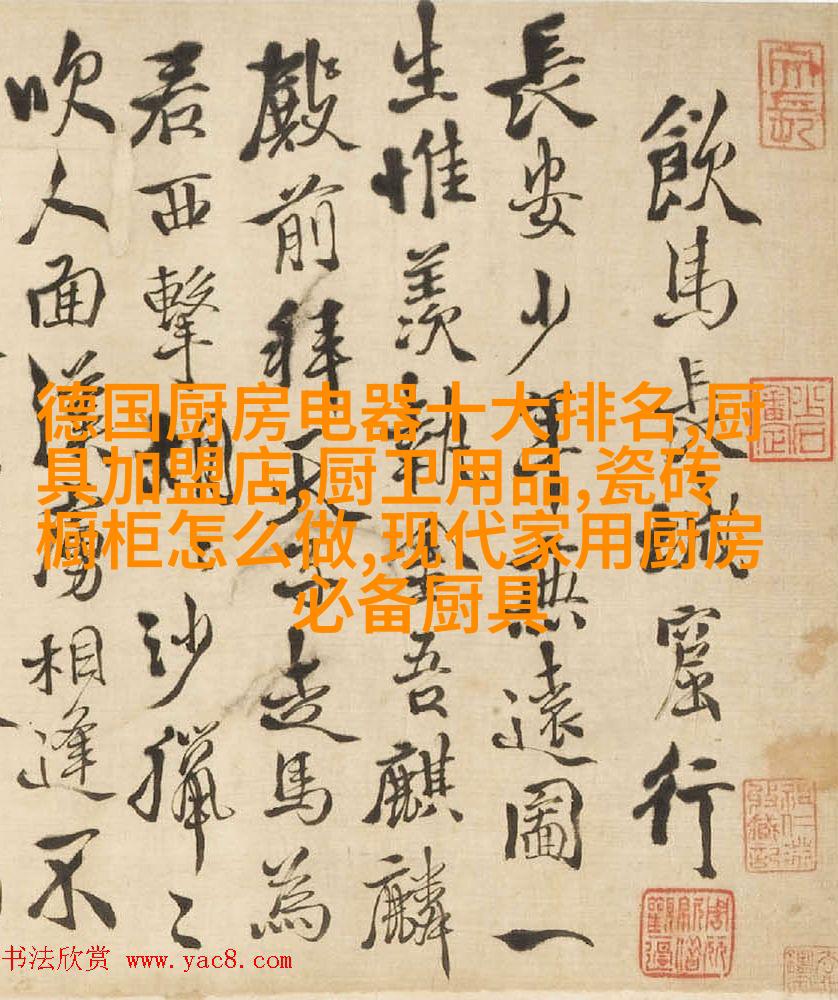 飲馬長城窟行
長安少年無遠圖一
生惟羨執金吾麒麟
殿前拜天子走馬為
君西擊胡〻沙獵〻
吹人面漢虜相逢不
德国厨房电器十大排名,厨
具加盟店,厨卫用品,瓷砖
橱柜怎么做,现代家用厨房
必备厨具
书法欣赏 www.yac8.com